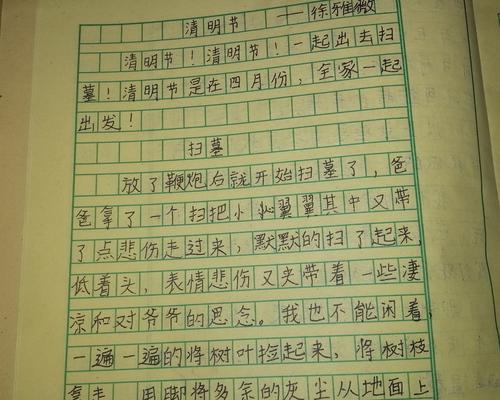 清明节 ——徐雅微
清明节！清明节！一起出去扫
墓！清明节是在四月份，全家一起
出发！
扫墓
放了鞭炮后就开始扫墓了，爸
爸拿了一个扫把小心翼翼其中又带
了点悲伤走过来，默默的扫了起来，
低着头，表情悲伤又夹带着一些凄
凉和对爷爷的思念。我也不能闲着，
一遍一遍的将树叶捡起来，将树枝
拿走，用脚将多余的灰尘从地面上